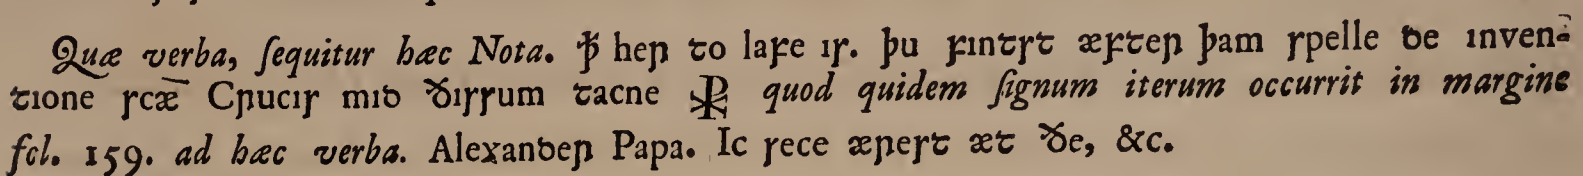 Quæ verba, ſequitur hæc Nota. ꝥ her to lafe is. þu fintst æfter þam spelle de inven-
tione scǣ Crucis mid ðissum tacne ☧ quod quidem ſignum iterum occurrit in margine
fol. 159. ad hæc verba. Alexander Papa. Ic sece ærest æt ðe, &c.